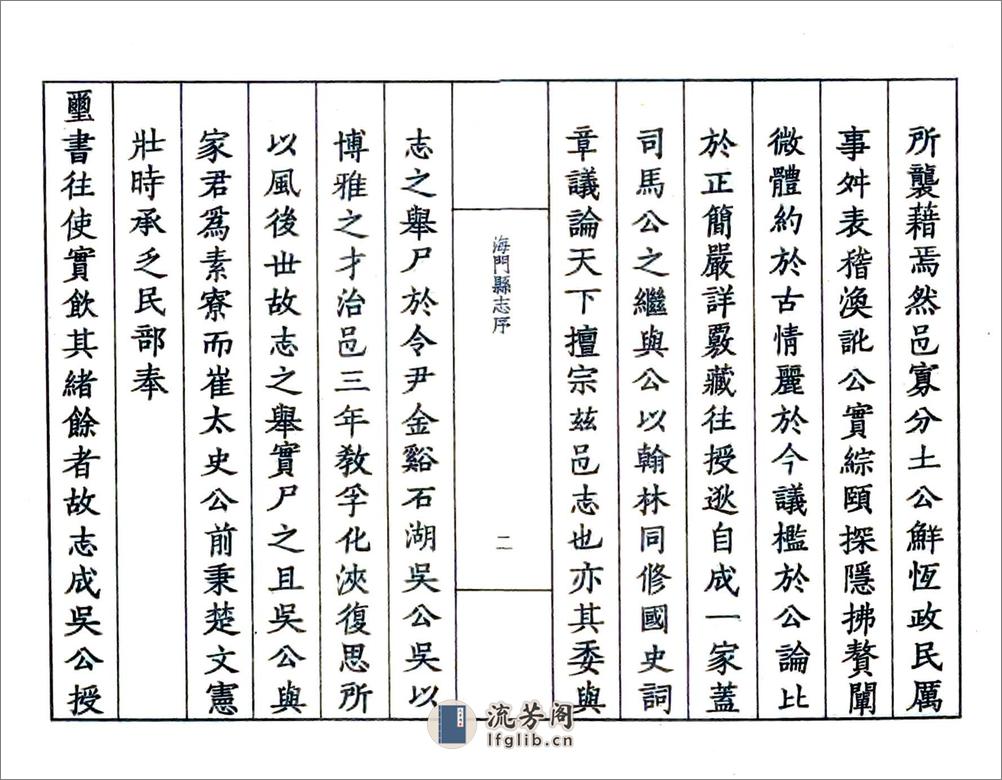 所襲藉焉然邑寡分土公鮮恆政民厲
事舛表稽渙訛公實綜頤探隱拂贅闡
微體約於古情麗於今議檻於公論比
於正簡嚴詳覈藏往授逖自成一家蓋
司馬公之繼與公以翰林同修國史詞
章議論天下擅宗茲邑志也亦其委與
海門縣志序
二
志之舉尸於令尹金谿石湖吳公吳以
博雅之才治邑三年教孚化浹復思所
以風後世故志之舉實尸之且吳公與
家君爲素寮而崔太史公前秉楚文憲
壯時承乏民部奉
璽書往使實飲其緒餘者故志成吳公授
流芳阁
lfglib.cn